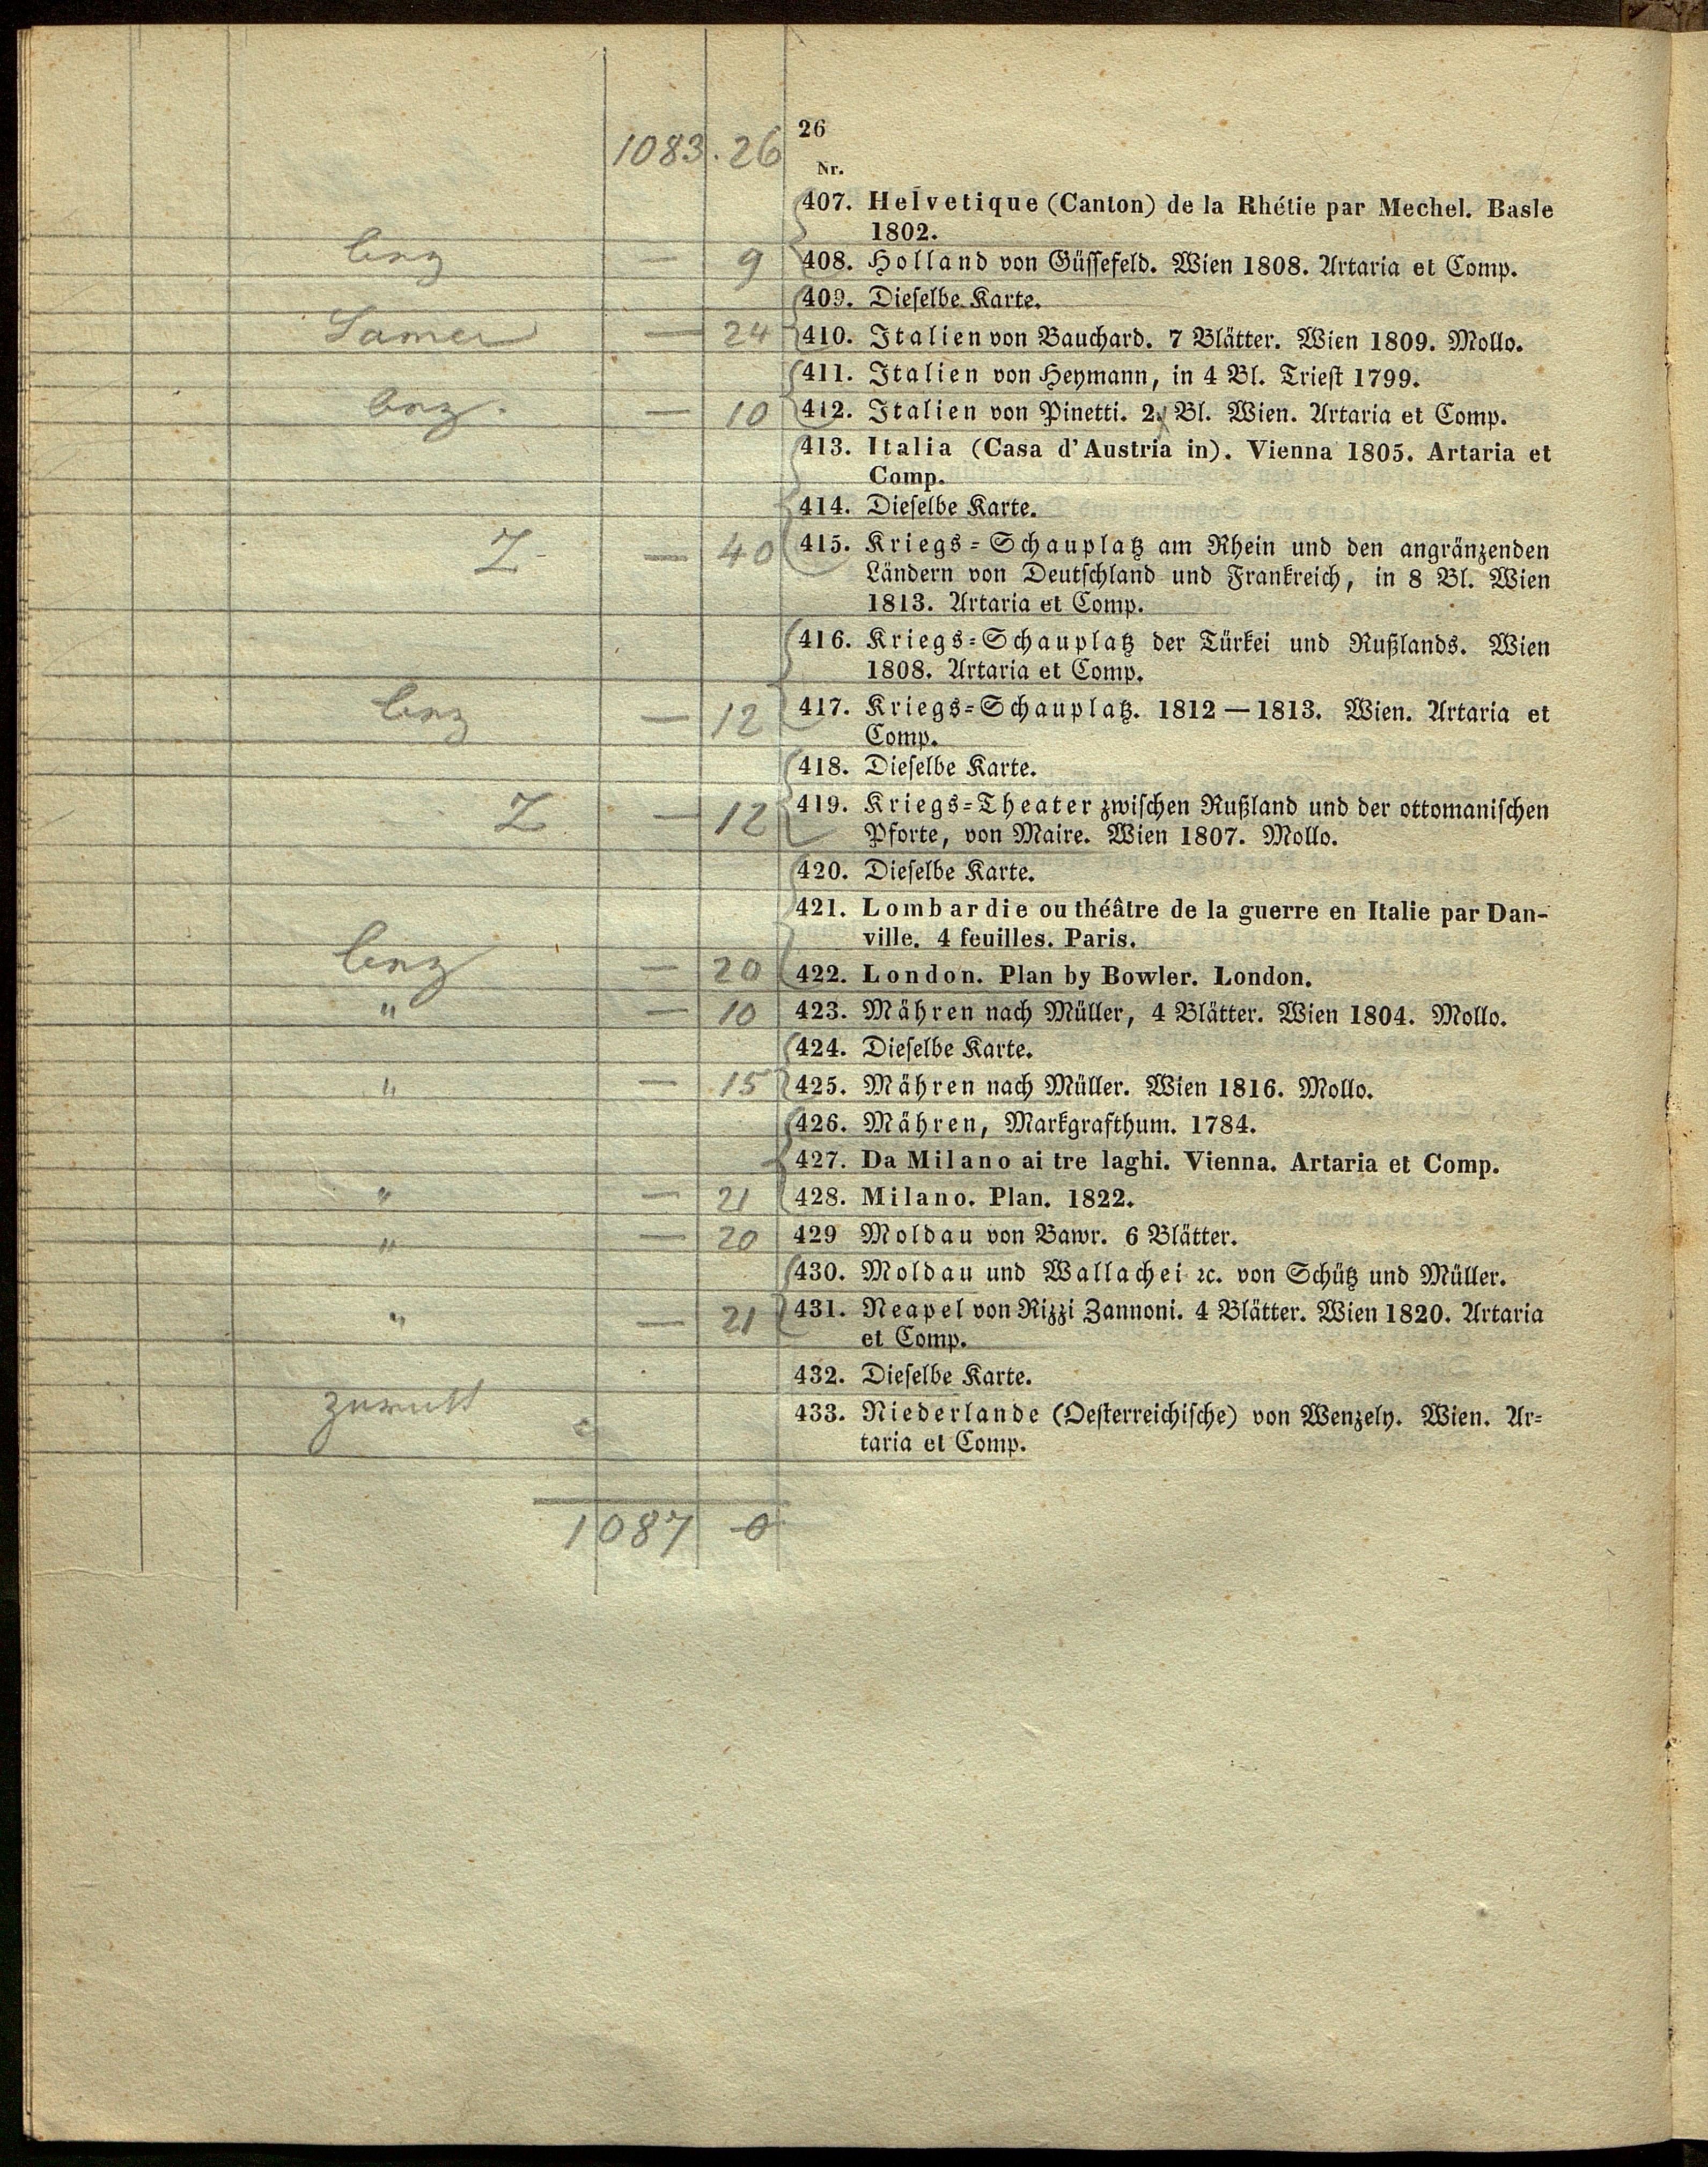 1083. 26
26
Nr.
407. Helvetique (Canton) de la Rhétie par Mechel. Basle
1802.
— 9 408. Holland von Güssefeld. Wien 1808. Artaria et Comp.
409. Dieselbe Karte.
— 24 410. Italien von Bauchard. 7 Blätter. Wien 1809. Mollo.
411. Italien von Heymann, in 4 Bl. Triest 1799.
— 10 412. Italien von Pinetti. 2 Bl. Wien. Artaria et Comp.
413. Italia (Casa d'Austria in). Vienna 1805. Artaria et
Comp.
414. Dieselbe Karte.
Z — 40 415. Kriegs-Schauplatz am Rhein und den angränzenden
Ländern von Deutschland und Frankreich, in 8 Bl. Wien
1813. Artaria et Comp.
416. Kriegs-Schauplatz der Türkei und Rußlands. Wien
1808. Artaria et Comp.
— 12 417. Kriegs-Schauplatz. 1812 — 1813. Wien. Artaria et
Comp.
418. Dieselbe Karte.
Z — 12 419. Kriegs-Theater zwischen Rußland und der ottomanischen
Pforte, von Maire. Wien 1807. Mollo.
420. Dieselbe Karte.
421. Lombardie ou théâtre de la guerre en Italie par Dan-
ville. 4 feuilles. Paris.
— 20 422. London. Plan by Bowler. London.
" — 10 423. Mähren nach Müller, 4 Blätter. Wien 1804. Mollo.
424. Dieselbe Karte.
" — 15 425. Mähren nach Müller. Wien 1816. Mollo.
426. Mähren, Markgrafthum. 1784.
427. Da Milano ai tre laghi. Vienna. Artaria et Comp.
" — 21 428. Milano. Plan. 1822.
" — 20 429 Moldau von Bawr. 6 Blätter.
430. Moldau und Wallachei ꝛc. von Schütz und Müller.
" — 21 431. Neapel von Rizzi Zannoni. 4 Blätter. Wien 1820. Artaria
et Comp.
432. Dieselbe Karte.
433. Niederlande (Oesterreichische) von Wenzely. Wien. Ar-
taria et Comp.
1087 0